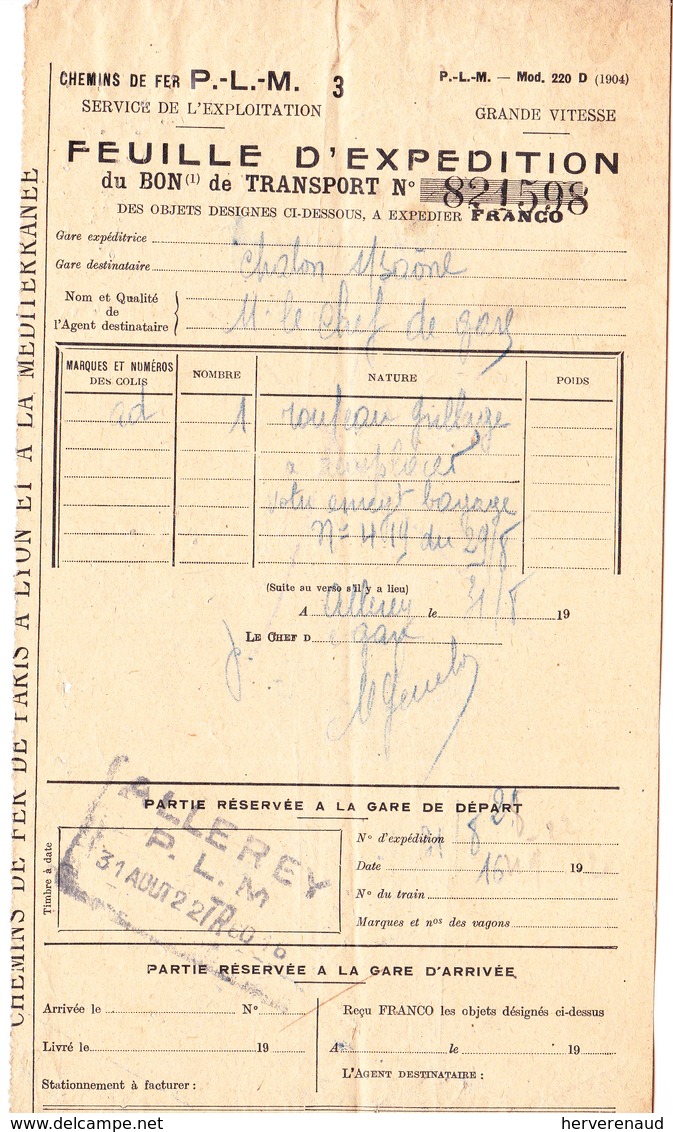 CHEMINS DE FER P.-L.-M. 3 P.-L.-M. — Mod. 220 D (1904)
SERVICE DE L'EXPLOITATION GRANDE VITESSE
FEUILLE D'EXPEDITION
du BON (1) de TRANSPORT No 821598
DES OBJETS DESIGNES CI-DESSOUS, A EXPEDIER FRANCO
Gare expéditrice
Gare destinataire Chalon s/Saône
Nom et Qualité
de
l'Agent destinataire M. le Chef de gare
MARQUES ET NUMÉROS DES COLIS NOMBRE NATURE POIDS
ad 1 rouleau grillage
a remplacer
bagage
No 419 du 29/8
(Suite au verso s'il y a lieu)
A Allerey le 31/8 19
LE CHEF D gare
PARTIE RÉSERVÉE A LA GARE DE DÉPART
Timbre à date
ALLEREY
P. L. M
31 AOUT 22
No d'expédition
Date 19
No du train
Marques et nos des vagons
PARTIE RÉSERVÉE A LA GARE D'ARRIVÉE
Arrivée le No
Livré le 19
Stationnement à facturer :
Reçu FRANCO les objets désignés ci-dessus
A le 19
L'AGENT DESTINATAIRE :
CHEMINS DE FER DE PARIS A LYON ET A LA MEDITERRANEE
delcampe.net
herverenaud